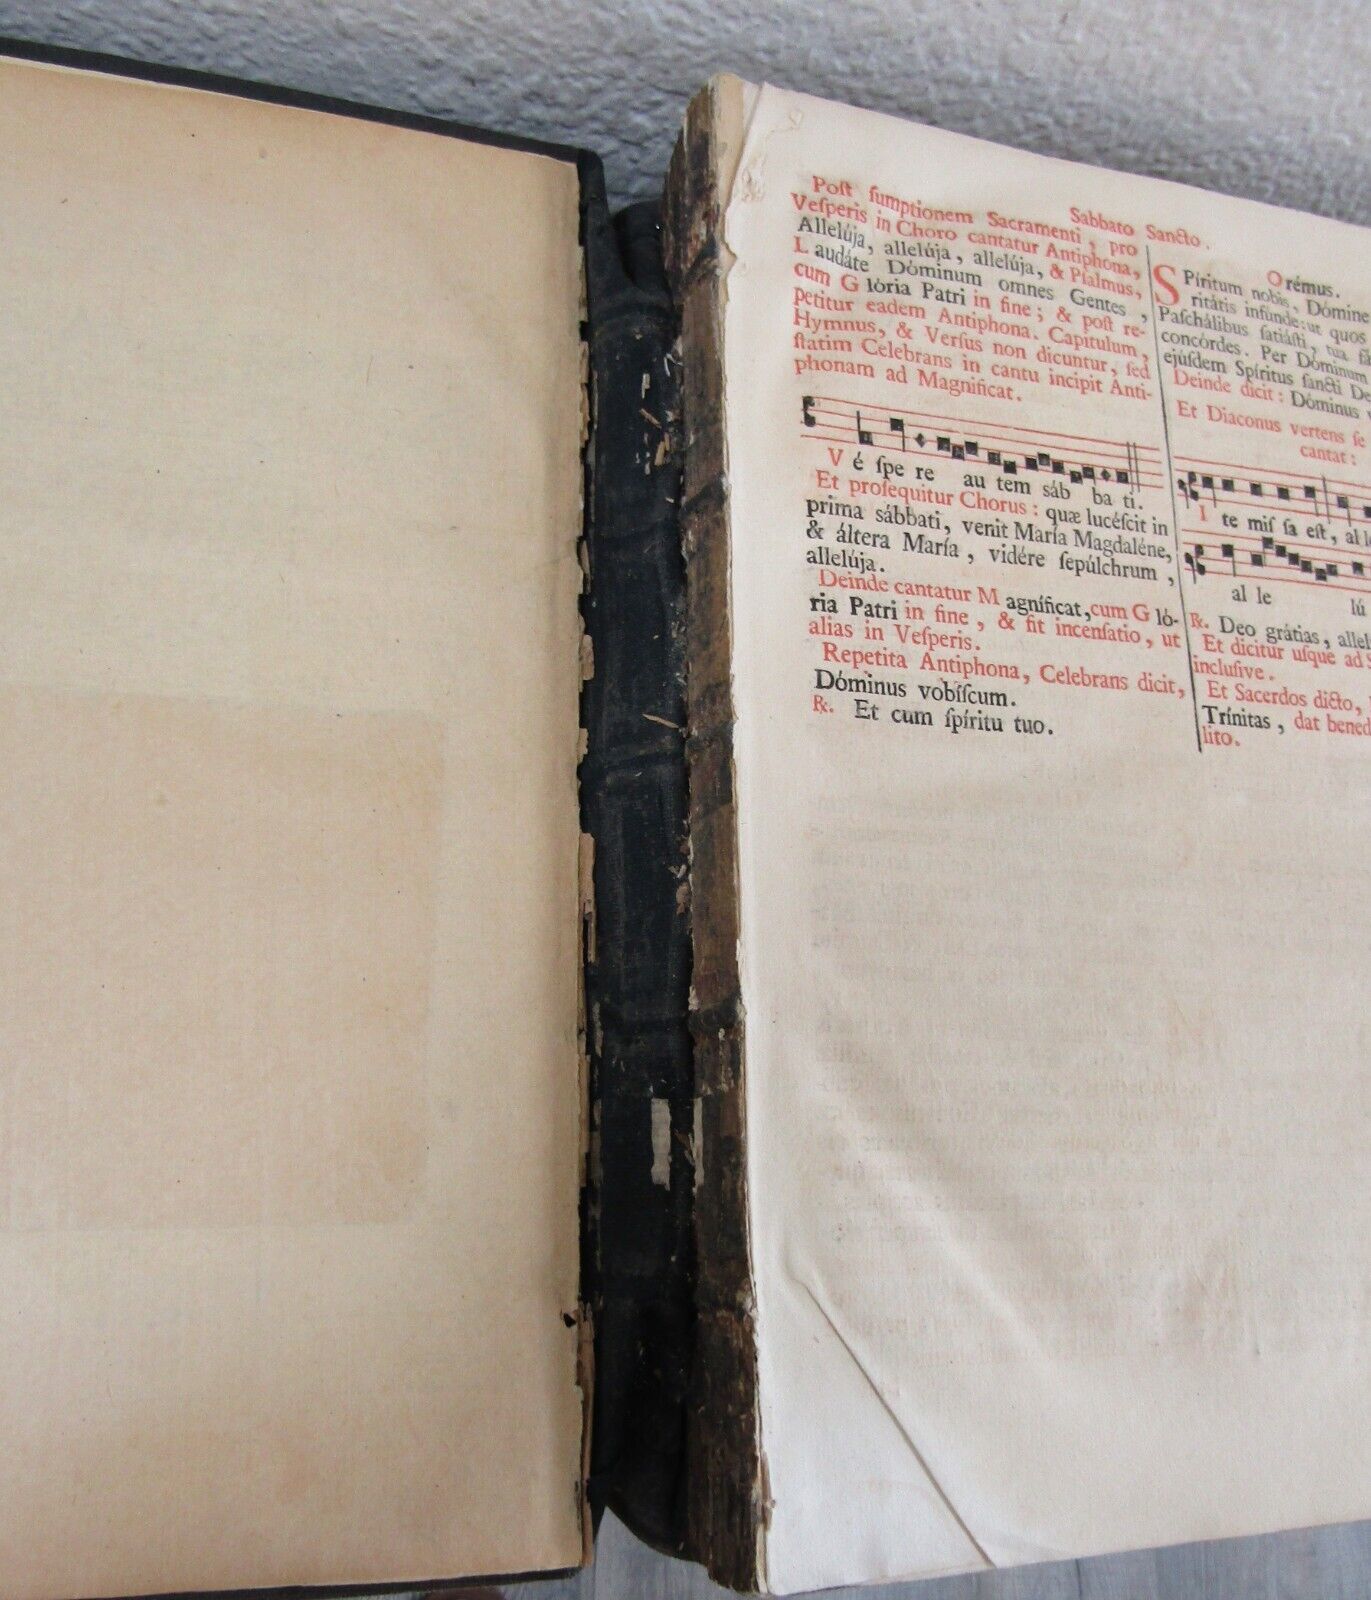 Sabbato Sancto.
Poſt ſumptionem Sacramenti, pro
Veſperis in Choro cantatur Antiphona,
Allelúja, allelúja, allelúja, & Pſalmus,
Laudáte Dóminum omnes Gentes,
cum Glória Patri in fine; & poſt re-
petitur eadem Antiphona. Capitulum,
Hymnus, & Verſus non dicuntur, ſed
ſtatim Celebrans in cantu incipit Anti-
phonam ad Magnificat.
Véſpere autem sáb bati.
Et proſequitur Chorus: quæ lucéſcit in
prima sábbati, venit María Magdaléne,
& áltera María, vidére ſepúlchrum,
allelúja.
Deinde cantatur Magníficat, cum Gló-
ria Patri in fine, & fit incenſatio, ut
alias in Veſperis.
Repetita Antiphona, Celebrans dicit,
Dóminus vobíſcum.
℟. Et cum ſpíritu tuo.
Orémus.
SPíritum nobis, Dómine
ritátis infúnde: ut quos
Paſchálibus ſatiáſti, tua
concórdes. Per Dóminum
ejúſdem Spíritus ſancti De
Deinde dicit: Dóminus
Et Diaconus vertens ſe
cantat:
Ite miſſa eſt, al le
al le lú
℟. Deo grátias, allel
Et dicitur uſque ad
incluſive.
Et Sacerdos dicto,
Trínitas, dat bened
lito.